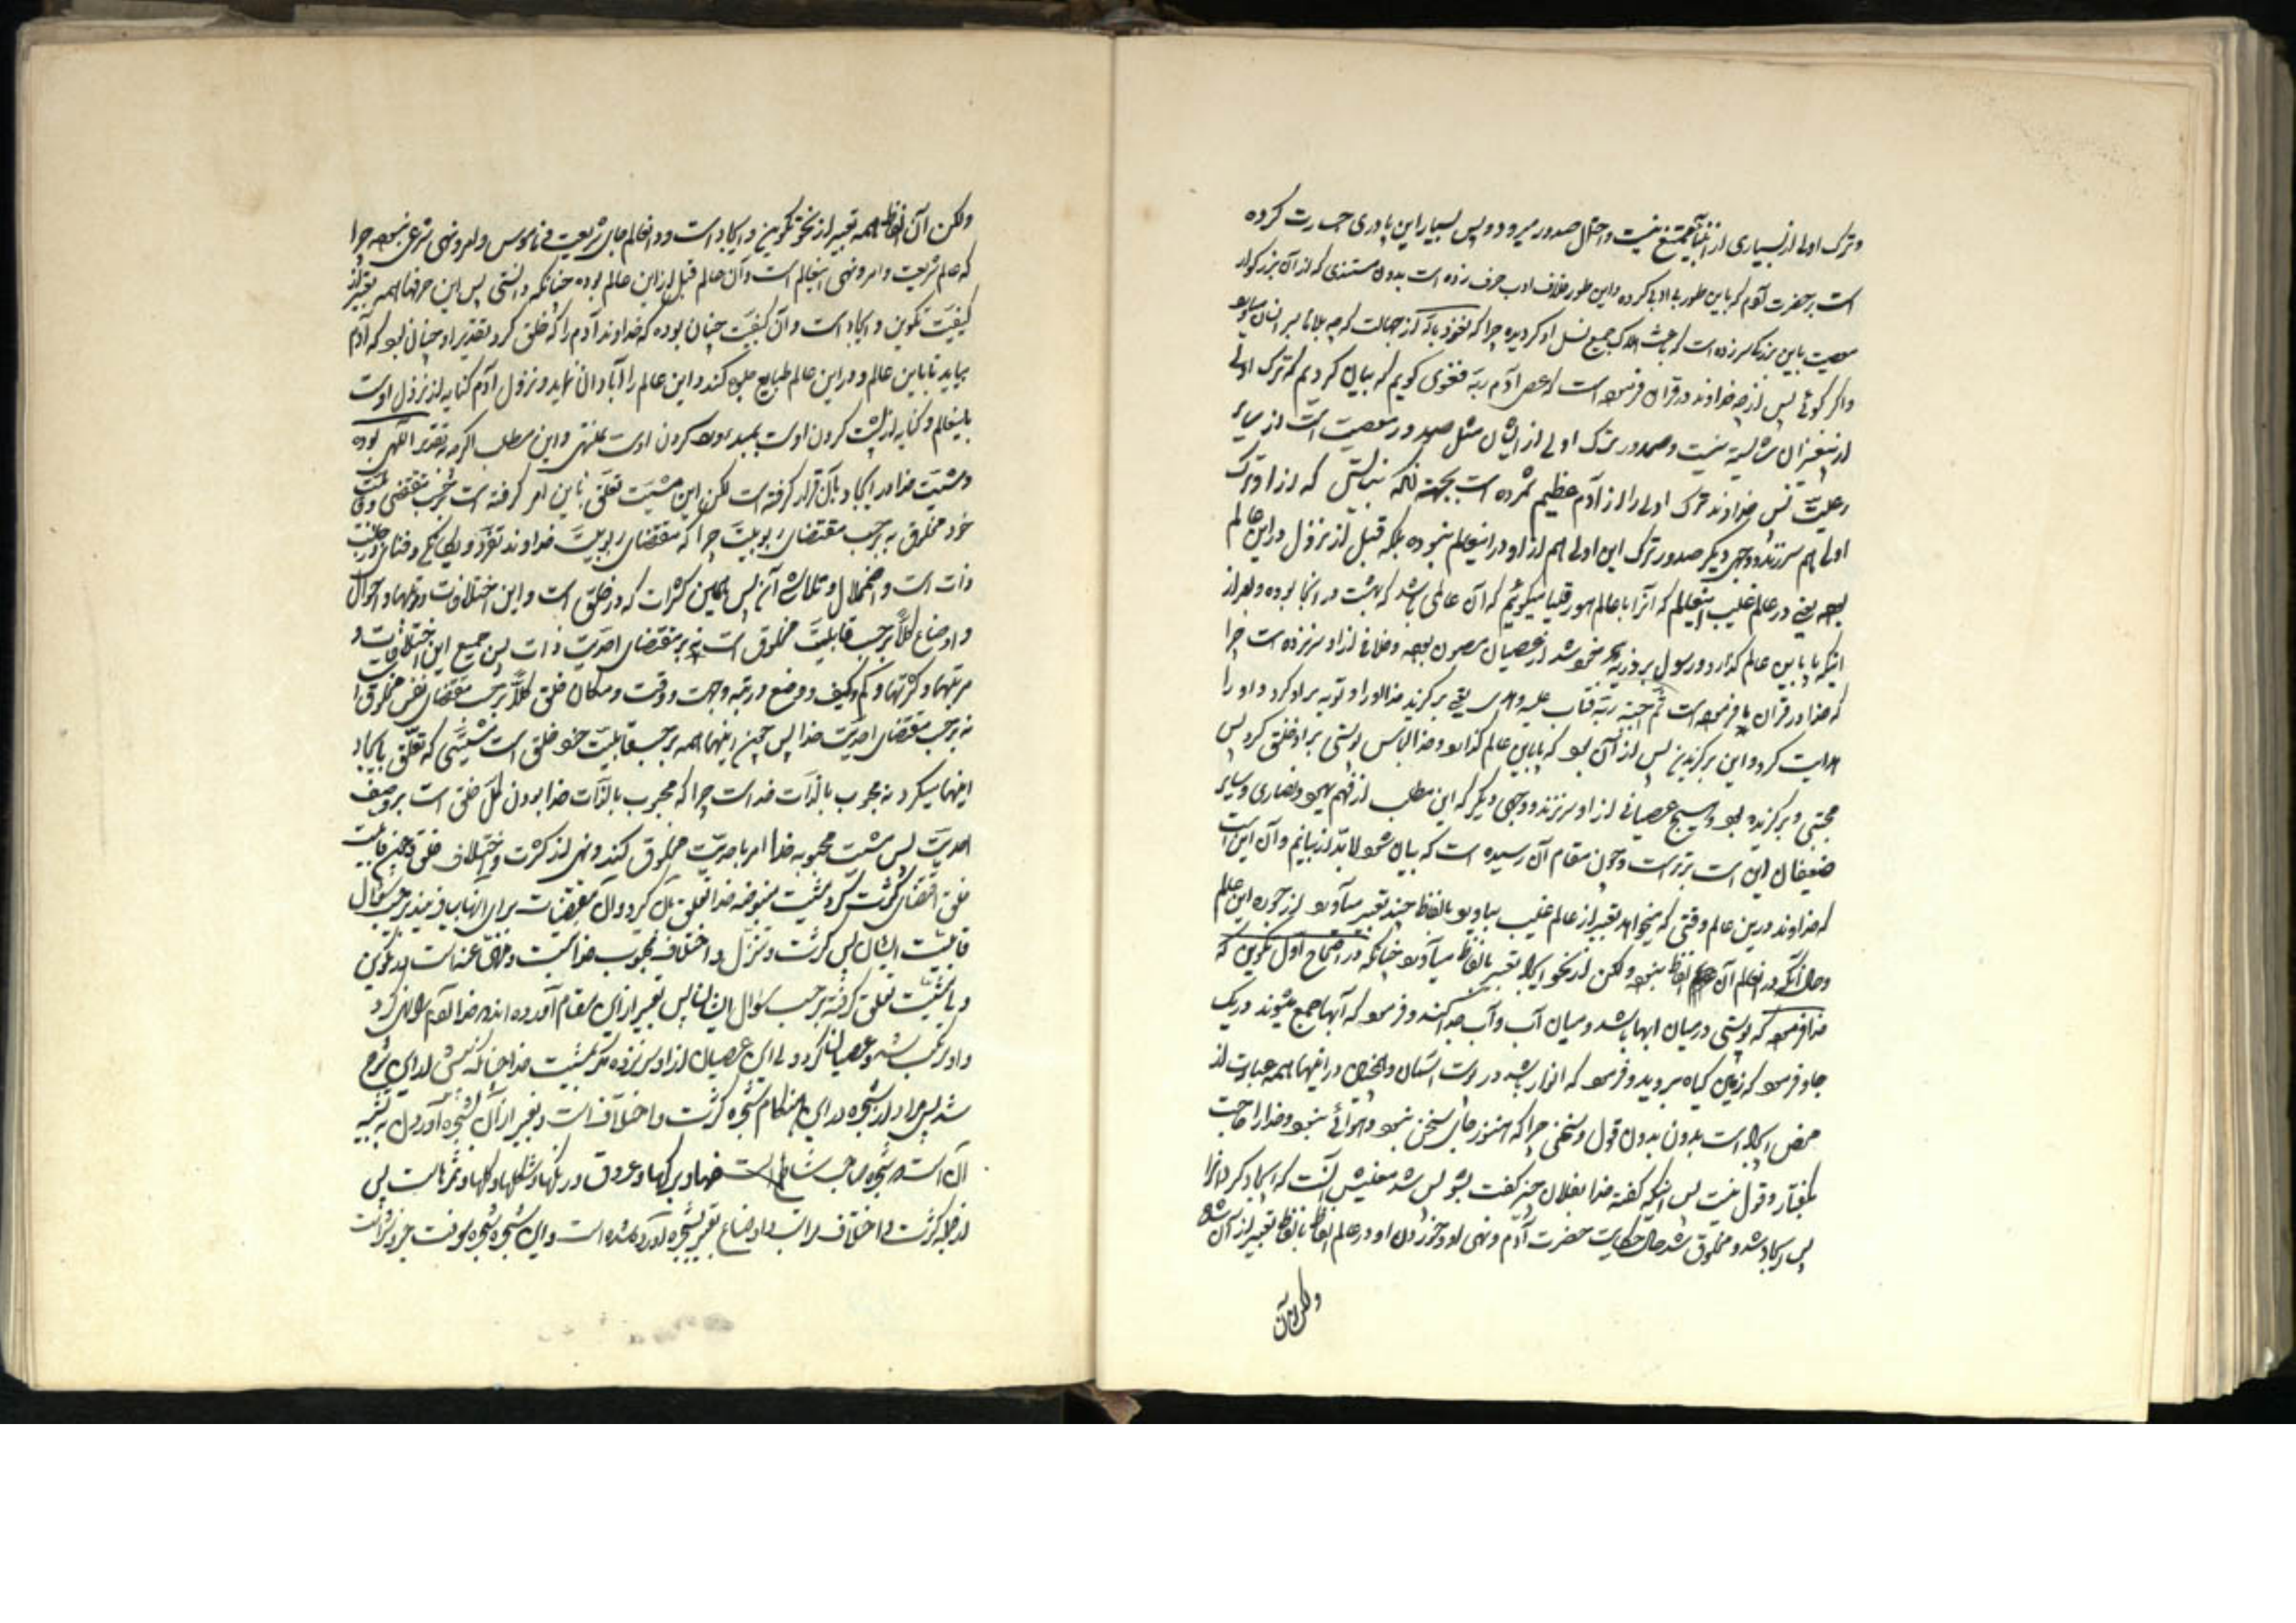 وترک اولی از بسیاری از انبیآ ممتنع نیست و احتمال صدور میرود و پس بسیار این پادری جسارت کرده
است بر حضرت آدم که باین طور بی ادبی کرده و این طور خلاف ادب حرف زده است بدون مستندی که از آن بزرگوار
معصیت باین بزرگی سر زده است که باعث هلاک جمیع نسل او گردیده چرا که نعوذ بالله از جهالت که چه بلاها بسر انسان میاورد
واگر گوئی پس از چه خداوند در قرآن فرموده است که عصی آدم ربه فغوی گویم که بیان کردیم که ترک اولی
از پیغمبران شایسته نیست و صدور ترک اولی از ایشان مثل صدور معصیت است از سایر
رعیت پس خداوند ترک اولی را از آدم عظیم شمرده است بجهت آنکه نبایستی که از او ترک
اولی هم سر زند و وجهی دیگر صدور ترک این اولی هم از او در اینعالم نبوده بلکه قبل از نزول در این عالم
بوده یعنی در عالم غیب اینعالم که آنرا عالم هورقلیا میگوئیم که آن عالمی باشد که بهشت در آنجا بوده و بعد از
اینکه پا باین عالم گذارد و رسول بر ذریه خود شد از عصیان مصون بوده و خلافی از او سر نزده است چرا
که خدا در قرآن فرموده است ثم اجتبیه ربه فتاب علیه وهدی یعنی برگزید خدا او را و توبه بر او کرد و او را
هدایت کرد و این برگزیدن پس از آن بود که پا باین عالم گذارد و خدا لباس پوستی بر او خلق کرد پس
مجتبی و برگزیده بود و هیچ عصیانی از او سر نزند و وجهی دیگر که این مطلب از فهم یهود و نصاری و سایر
ضعیفان این است برتر است و چون مقام آن رسیده است که بیان شود لابد از بیانیم و آن این است
که خداوند در این عالم وقتی که میخواهد تعبیر از عالم غیب بیاورد بالفاظ چند تعبیر میآورد از جوره این عالم
وحال آنکه در آنعالم آن الفاظ نبود ولکن از نحو ایجاد تعبیر بالفاظ میآورد چنانکه در اصحاح اول تکوین که
خدا فرمود که پوستی در میان ابها باشد و میان آب و آب جدا کند و فرمود که آبها جمع شوند در یک
جا و فرمود که زمین گیاه بروید و فرمود که انوار باشد در پوست آسمان والحاصل در اینها همه عبارت از
محض ایجاد است بدون بدون قول و سخنی چرا که هنوز جای سخن نبود و هوائی نبود و خدا را حاجت
بگفتار و قول نیست پس اینکه گفته خدا بفلان چیز گفت بشو پس شد معنیش آنست که ایجاد کرد آنرا
پس ایجاد شد و مخلوق شد حال حکایت حضرت آدم و نهی او و خوردن او در عالم الفاظ بالفاظ تعبیر از آن شده
ولکن آن
ولکن آن الفاظ همه تعبیر از نحو تکوین و ایجاد است و در آنعالم جای شریعت و ناموس و امر و نهی شرعی نبوده چرا
که عالم شریعت و امر و نهی اینعالم است و آن عالم قبل از این عالم بوده چنانکه دانستی پس این حرفها همه تعبیر از
کیفیت تکوین و ایجاد است و آن کیفیت چنان بوده که خداوند آدم را که خلق کرد تقدیر او چنان بود که آدم
بیاید تا باین عالم و در این عالم طبایع جلوه کند و این عالم را آبادان نماید و نزول آدم کنایه از نزول اوست
باینعالم و کنایه از پشت کردن اوست بمبدء و رو کردن اوست بمنتهی و این مطلب اگرچه تقدیر اللهی بوده
ومشیت خدا در ایجاد بآن قرار گرفته است لکن این مشیت تعلق باین امر گرفته است بر حسب مقتضی وقابلیت
خود مخلوق نه بر حسب مقتضای ربوبیت چرا که مقتضای ربوبیت خداوند تفرد و یگانگی و فنای در جنب
ذات است و اضمحلال و تلاشی آن پس همین کثرات که در خلق است و این اختلافات و تولهها و احوال
و اوضاع کلاً بر حسب قابلیت مخلوق است نه بر مقتضای احدیت ذات پس جمیع این اختلافات و
مرتبهها و کثرتها و کم و کیف و وضع و رتبه و جهت و وقت و مکان خلق کلاً بر حسب مقتضای نفس مخلوق است
نه بر حسب مقتضای احدیت خدا پس چون اینها همه بر حسب قابلیت خود خلق است مشیتی که تعلق بایجاد
اینها میگیرد نه محبوب بالذات خداست چرا که محبوب بالذات خدا بودن کل خلق است بر وصف
احدیت پس مشیت محبوبه خدا امر باحدیت مخلوق کند و نهی از کثرت و اختلاف خلق و چون قابلیت
خلق اقتضای کثرت کرد مشیت مبغوضه خدا تعلق بآن گرد و آن مقتضیات برای آنها بیافریند بر حسب سؤال
قابلیت ایشان پس کثرت و تنزل و اختلاف محبوب خدا نیست و منهی عنهاست در تکوین
و باز مشیت تعلق گرفته بر حسب سؤال ایشان پس تعبیر از این مقام آورده اند که خدا آدم را نهی کرد
و او مرتکب شد و عصیان کرد ولی این عصیان از او سر نزده مگر بمشیت خدا چنانکه شرح
شد پس مراد از شجره در این هنگام شجره کثرت و اختلاف است و تعبیر از آن بشجره آوردن به تشبیه
آن است که شجره صاحب شاخها و برگها و عروق و رنگها و شکلها و گلها و ثمرهاست پس
از جهة کثرت و اختلاف مراتب و اوضاع تعبیر بشجره آورده شده است و این شجره شجره معرفت خیر و شر است